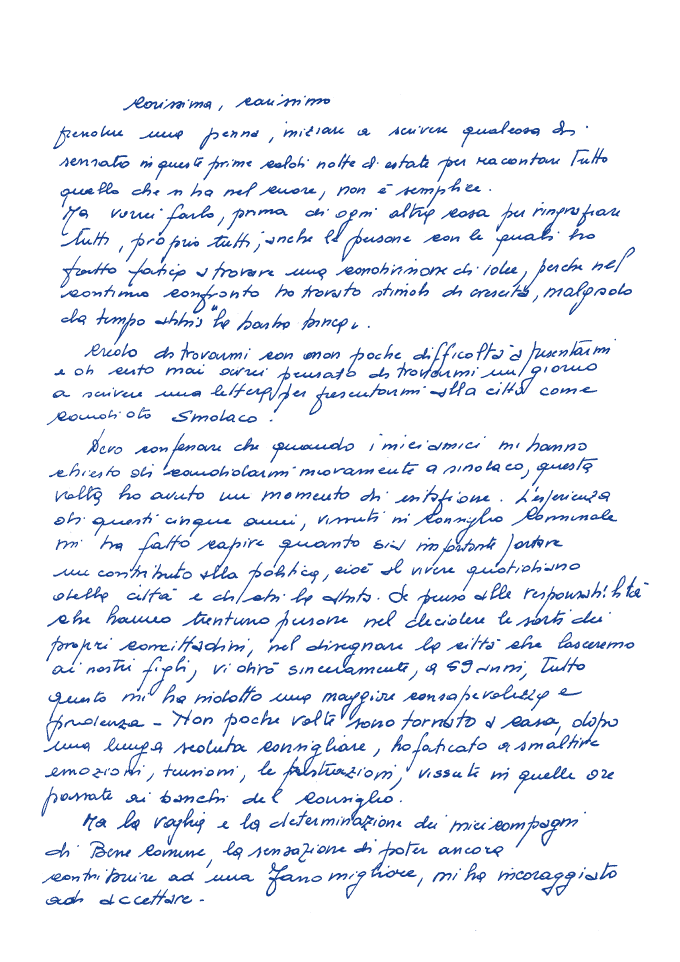 Carissima, carissimo
prendere una penna, iniziare a scrivere qualcosa di
sensato in queste prime calde notte d'estate per raccontare tutto
quello che si ha nel cuore, non è semplice.
Ma vorrei farlo, prima di ogni altra cosa per ringraziare
tutti, proprio tutti, anche le persone con le quali ho
fatto fatica a trovare una condivisione di idee, perché nel
continuo confronto ho trovato stimoli di crescita, malgrado
da tempo abbia la barba bianca.
Credo di trovarmi con non poche difficoltà a presentarmi
e di certo mai avrei pensato di trovarmi un giorno
a scrivere una lettera per presentarmi alla città come
candidato Sindaco.
Devo confessare che quando i miei amici mi hanno
chiesto di candidarmi nuovamente a sindaco, questa
volta ho avuto un momento di esitazione. L'esperienza
di questi cinque anni, vissuti in Consiglio Comunale
mi ha fatto capire quanto sia importante portare
un contributo alla politica, cioè al vivere quotidiano
della città e di chi la abita. Se penso alle responsabilità
che hanno trentuno persone nel decidere le sorti dei
propri concittadini, nel disegnare la città che lasceremo
ai nostri figli, vi dirò sinceramente, a 59 anni, tutto
questo mi ha indotto una maggiore consapevolezza e
prudenza - Non poche volte sono tornato a casa, dopo
una lunga seduta consigliare, ho faticato a smaltire
emozioni, tensioni, le frustrazioni, vissute in quelle ore
passate ai banchi del Consiglio.
Ma la voglia e la determinazione dei miei compagni
di Bene Comune, la sensazione di poter ancora
contribuire ad una Fano migliore, mi ha incoraggiato
ad accettare.